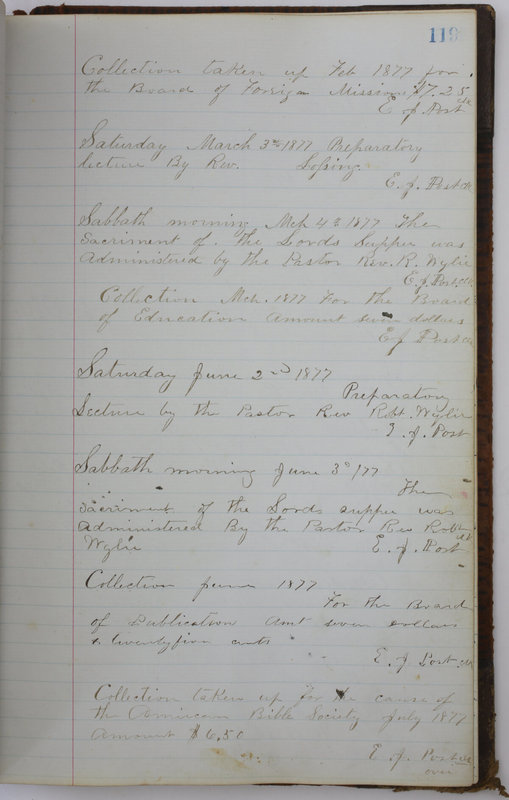 119
Collection taken up Feb 1877 for
the Board of Foreign Mission $7.25
E. J. Post clk
Saturday March 3rd 1877 Preparatory
lecture By Rev. Loſsing.
E. J. Post clk
Sabbath morning Mch 4th 1877 The
Sacriment of. the Lords Supper was
Administered by the Pastor Rev. R. Wylie
E. J. Post. clk
Collection Mch. 1877 For the Board
of Education Amount seven dollars
E J Post clk
Saturday June 2nd 1877
Preparatory
Lecture by the Pastor Rev Robt. Wylie
E. J. Post
Sabbath morning June 3d/77
The
Sacriment of the Lords supper was
administered By the Pastor Rev Robt
Wylie E. J. Post clk
Collection June 1877
For the Board
of Publication Amt seven dollars
& twentyfive cents
E. J Post. clk
Collection taken up for the cause of
the American Bible Society July 1877
Amount $6,50
E J. Post clk
over